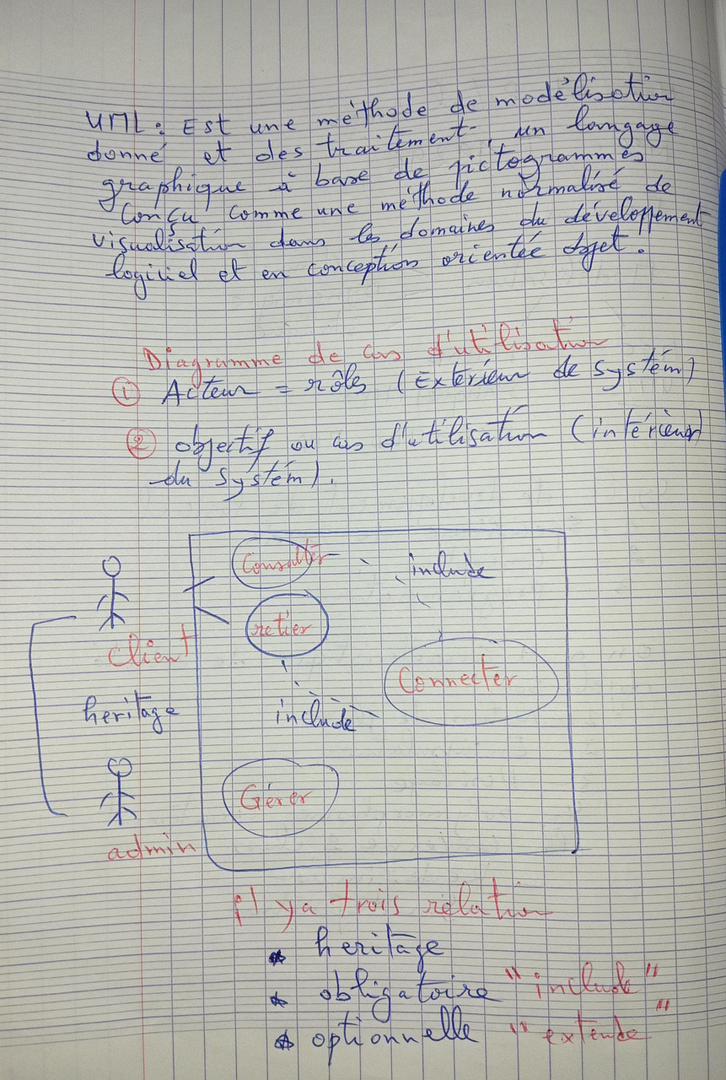 UML : Est une méthode de modélisation
donné et des traitement un langage
graphique à base de pictogrammes
Conçu comme une méthode normalisé de
visualisation dans les domaines du développement
logiciel et en conception orientée objet.
Diagramme de cas d'utilisation
① Acteur = rôles (Extérieur de systém)
② objectif ou cas d'utilisation (intérieur
du systém).
Consulter include
retier
client Connecter
heritage include
Gérer
admin
il ya trois relation
* heritage
* obligatoire "include"
* optionnelle "extende"